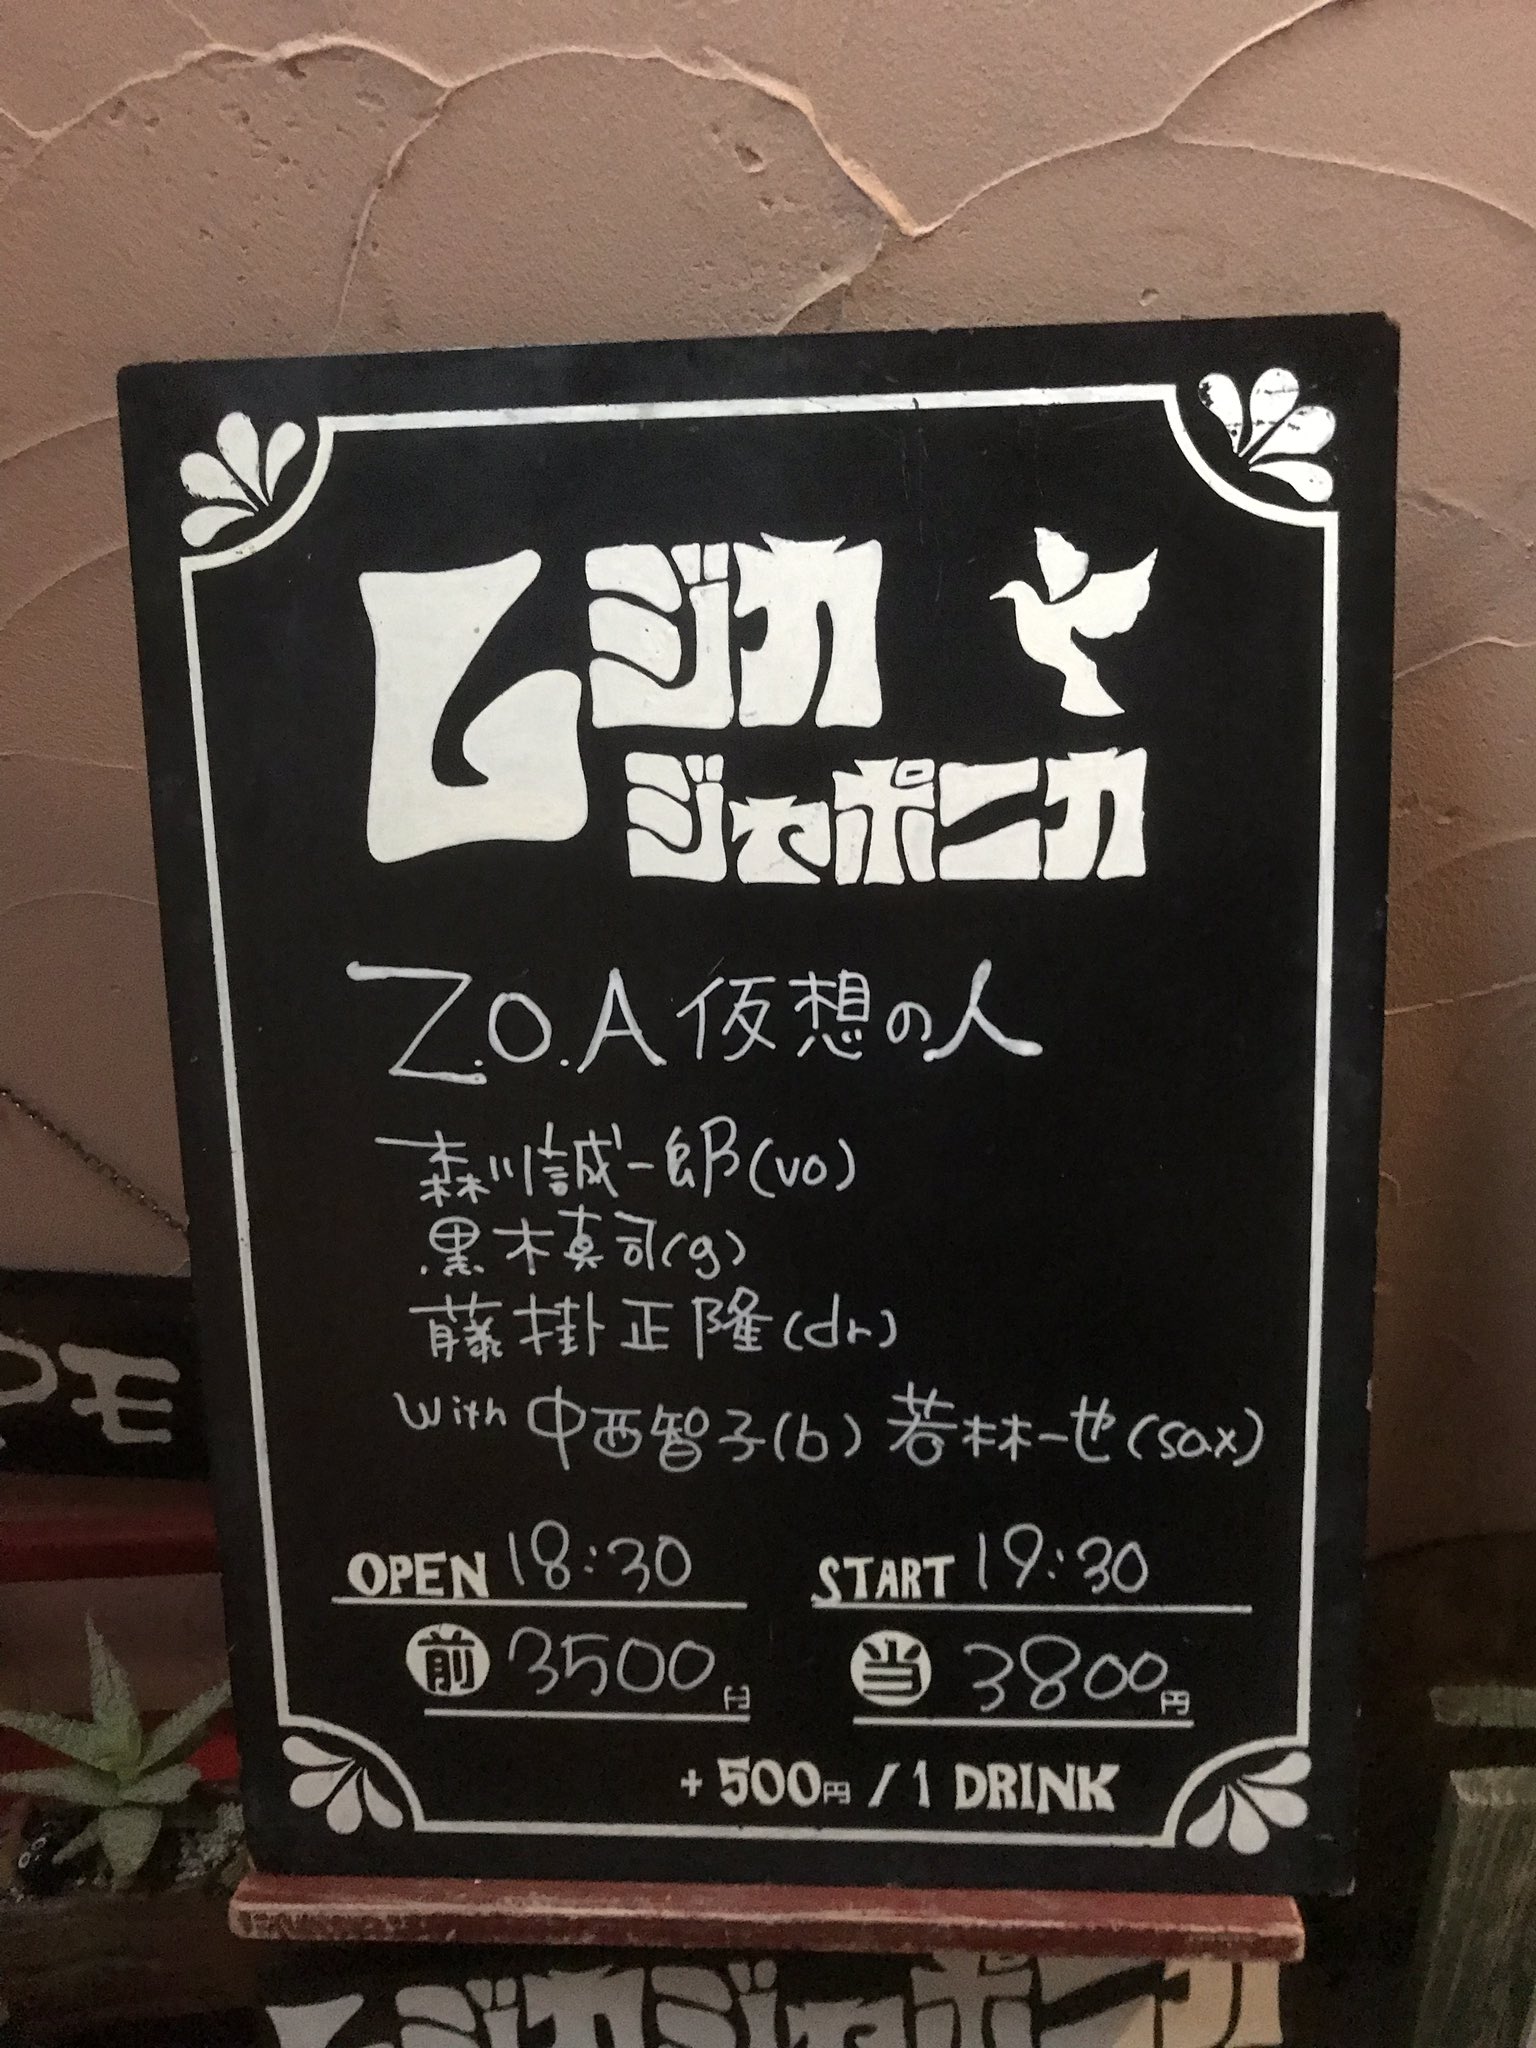 レジカ
ジャポニカ
Z.O.A 仮想の人
森川誠一郎(vo)
黒木真司(g)
藤掛正隆(dr)
with 中西智子(b) 若林一也(sax)
OPEN 18:30 START 19:30
前 3500円 当 3800円
+500円 / 1 DRINK
レジカジャポニカ